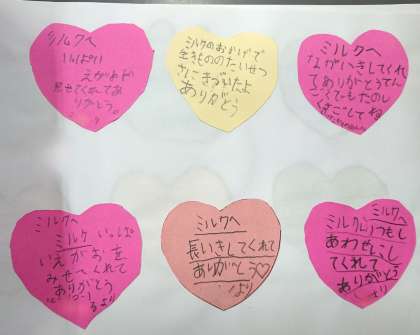 ミルクへ
いっぱい
えがおを
見せてくれてあ
りがとう。
ミルクのおかげで
生きもののたいせつ
さにきづいたよ
ありがとう
ミルクへ
ながいきしてくれ
てありがとうてん
ごくでもたのし
くすごしてね
ミルクへ
ミルクいっぱ
いえがおを
みせてくれて
ありがとう
より
ミルクへ
長いきしてくれて
ありがとう♡
より
ミルクへ
ミルクいつもし
あわせにし
てくれて
ありがとう
より